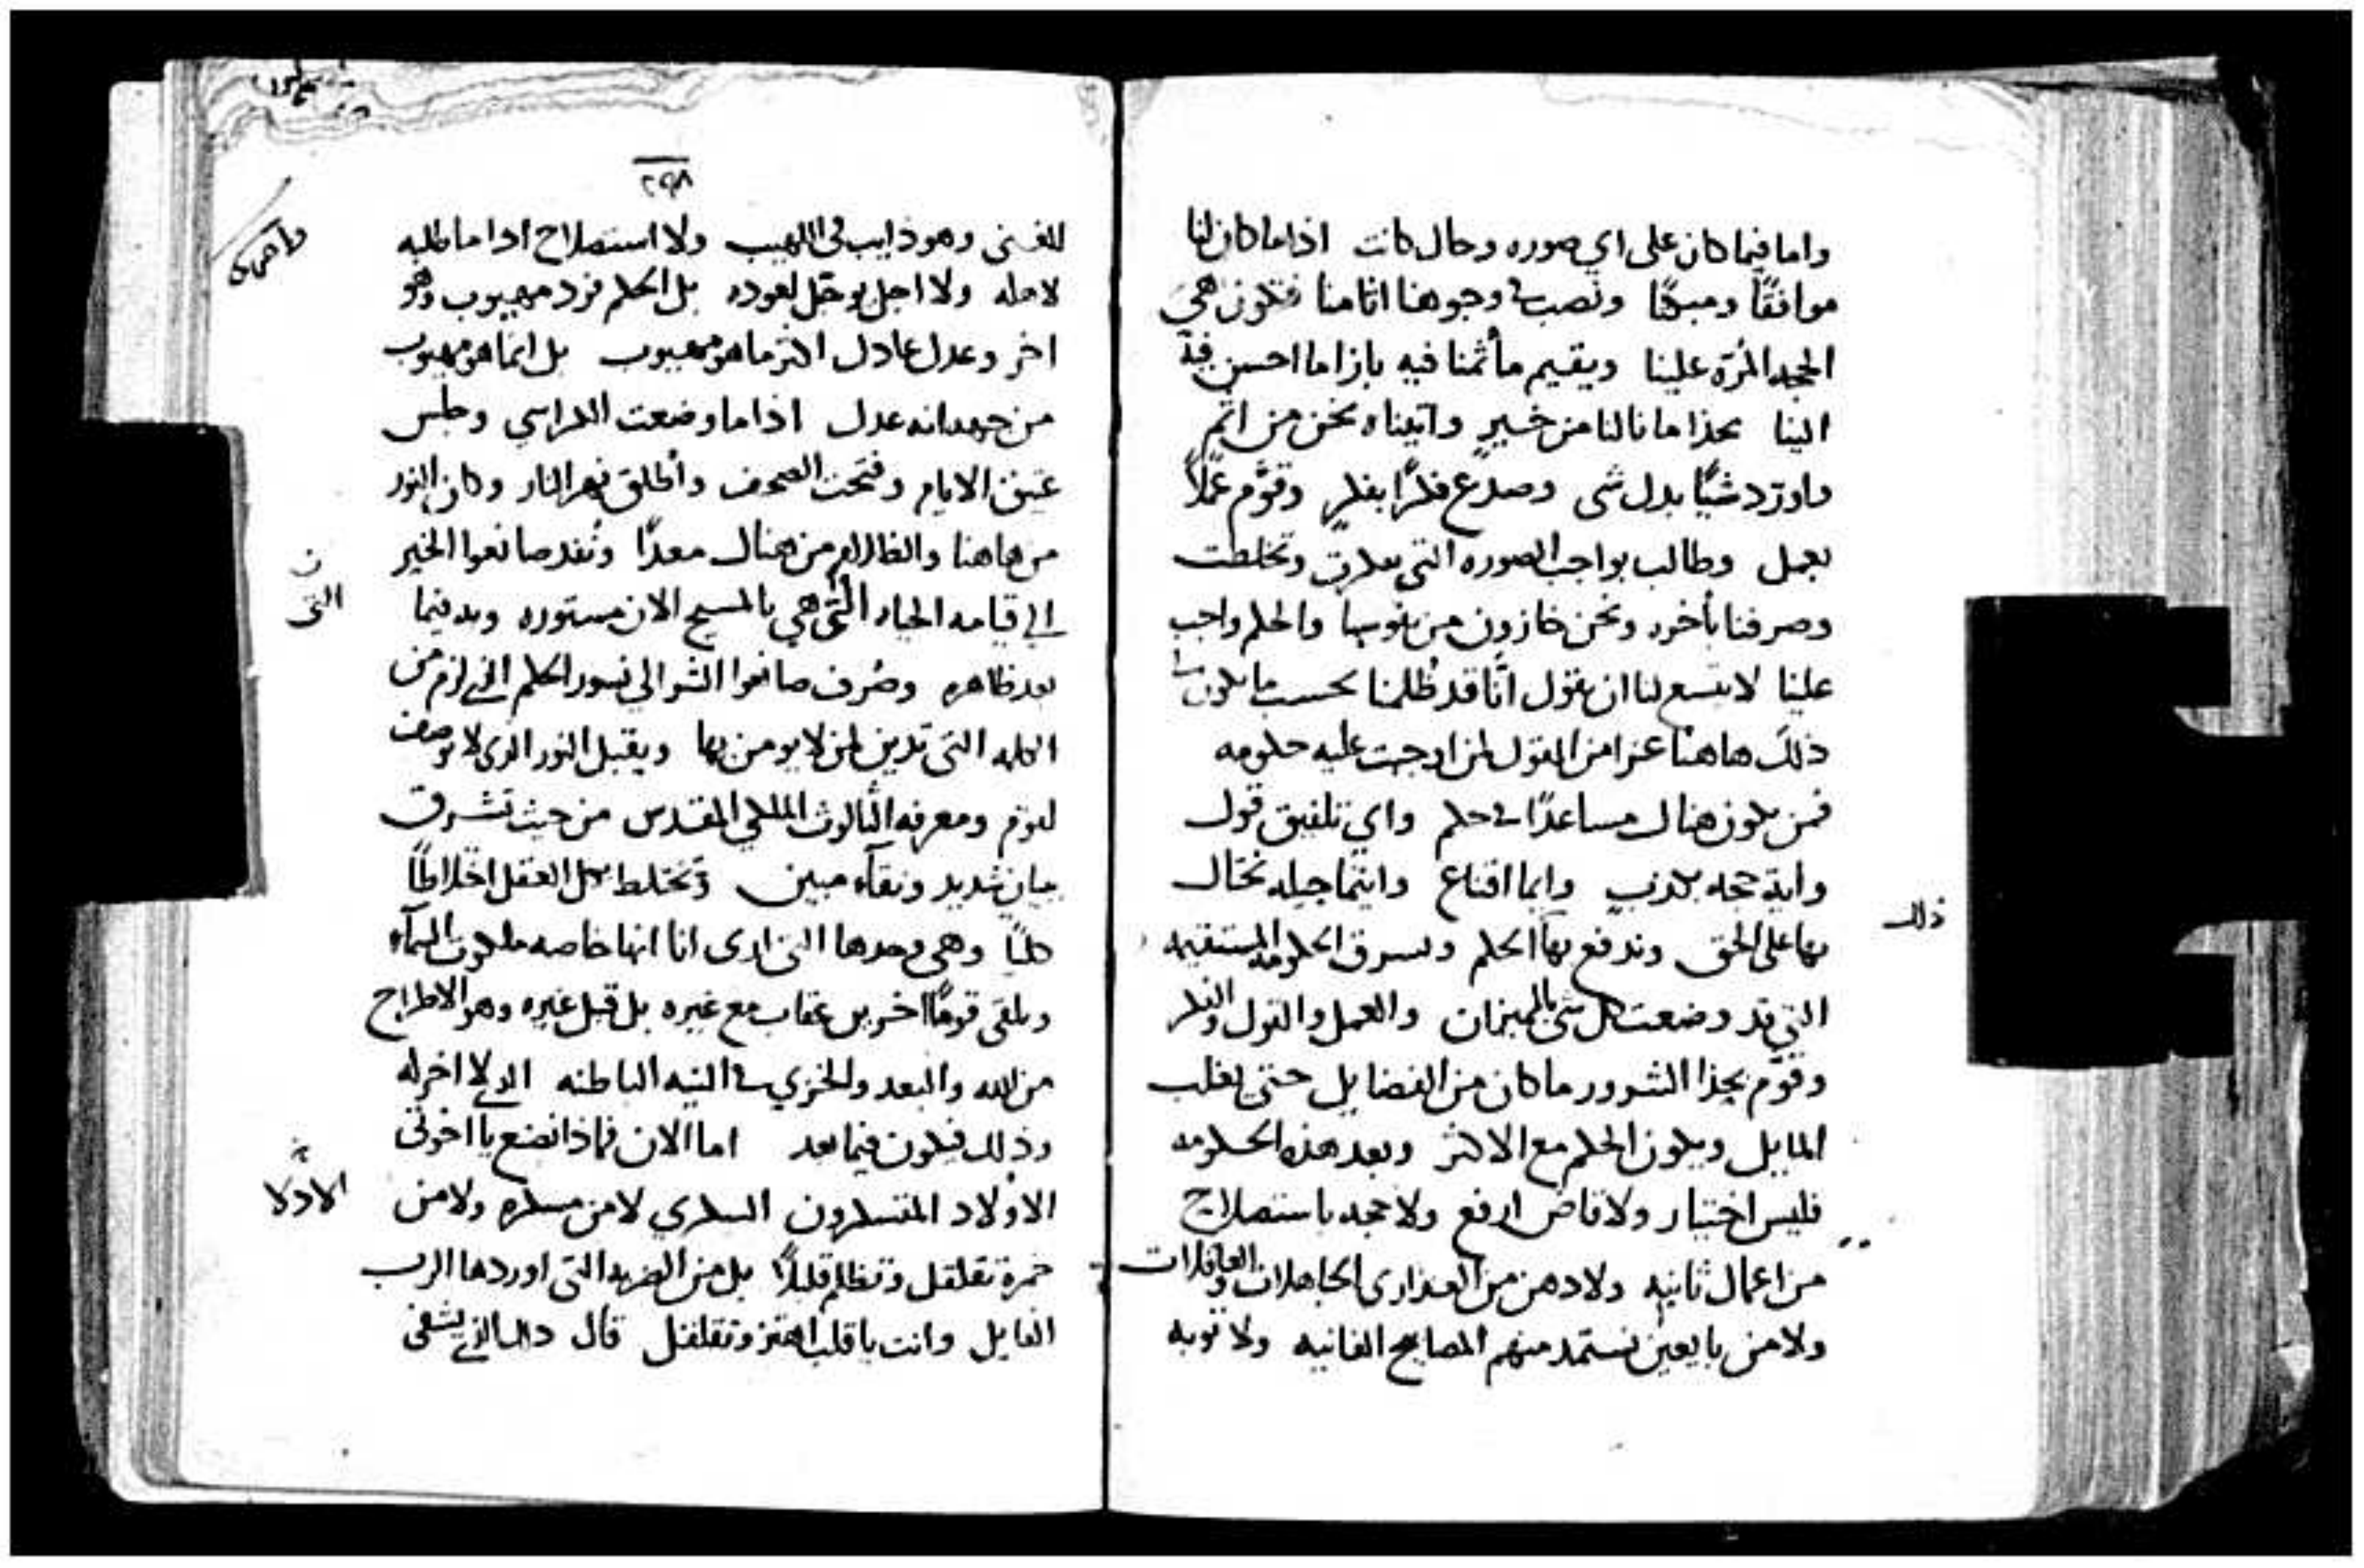 واما فيما كان على اي صوره وحال كانت اذا ما كان لنا
موافقًا ومبكتًا ونصب وجوهنا اثامنا فتكون هي
الحجه المرّة علينا ويقيم ما أثمنا فيه بازا ما احسن فيه
الينا بحذا ما نالنا من خيرٍ واتيناه نحن من اثم
واورد شيًا بدل شى وصدع فكرًا بفكرٍ وقوَّم عملًا
بعمل وطالب بواجب الصوره التي وتخلطت
وصرفنا بأخره ونحن خازون من نفوسنا والحكم واجب
علينا لا يتسع لنا ان نقول انَّا قد ظُلمنا بحسب ما يكون
ذلك هاهنا عزا من القول لمن اوجبت عليه حكومه
فمن يكون هناك مساعدًا في حكم واي تلفيق قول
واية حجه بكذبٍ وايما اقناع وايتما حيله نحتال
بها على الحق وندفع بها الحكم ونسرق الحكومه المستقيمه
ذلك
التي قد وضعت كل شى بالميزان والعمل والقول والفكر
وقوَّم بحذا الشرور ما كان من الفضايل حتى يغلب
المايل ويكون الحكم مع الاكثر وبعد هذه الحكومه
فليس اختيار ولا قاضٍ ارفع ولا حجه باستصلاح
من اعمال ثانيه ولا دهن من العذارى الجاهلات والعاقلات
ولا من بايعين نستمد منهم المصابيح الفانيه ولا توبه
٢٩٨
للغنى وهو ذايب في اللهيب ولا استصلاح اذا ما طلبه
لاهله ولا اجل يوجل لعوده بل الحكم فرد مهيوب وهو
اخر وعدل عادل اكثر ما هو مهيوب بل انما هو مهيوب
من جهه انه عدل اذا ما وضعت الكراسي وجلس
عتيق الايام وفتحت الصحف وأطلق نهر النار وكان النور
من هاهنا والظلام من هناك معدًّا ونفد صانعوا الخير
الى قيامه الحياه التي هي بالمسيح الان مستوره وبه فيما
التى
بعد ظاهره وصُرف صانعوا الشر الى نشور الحكم الذي لزم من
الكلمه التي تدين لمن لا يومن بها ويقبل النور الذي لا يوصف
لقوم ومعرفه الثالوث الملكي المقدس من حيث تشرق
بيان شديد ونقآء مبين وتختلط بكل العقل اختلاطًا
كليًا وهي وحدها التي ارى انا انها خاصه ملكوت السمآء
ويلقى قومًا اخرين عقاب مع غيره بل قبل غيره وهو الاطراح
من الله والبعد والخزي في النيه الباطنه الذي لا اخر له
وذلك فيكون فيما بعد اما الان فماذا نصنع يا اخوتى
الاولاد المنتكسون السكري لا من مسكره ولا من
خمرة تقلقل وتظلم قليلًا بل من الضربه التي اوردها الرب
القايل وانت يا قلب اهتز وتقلقل قال ذلك الذي يشفى